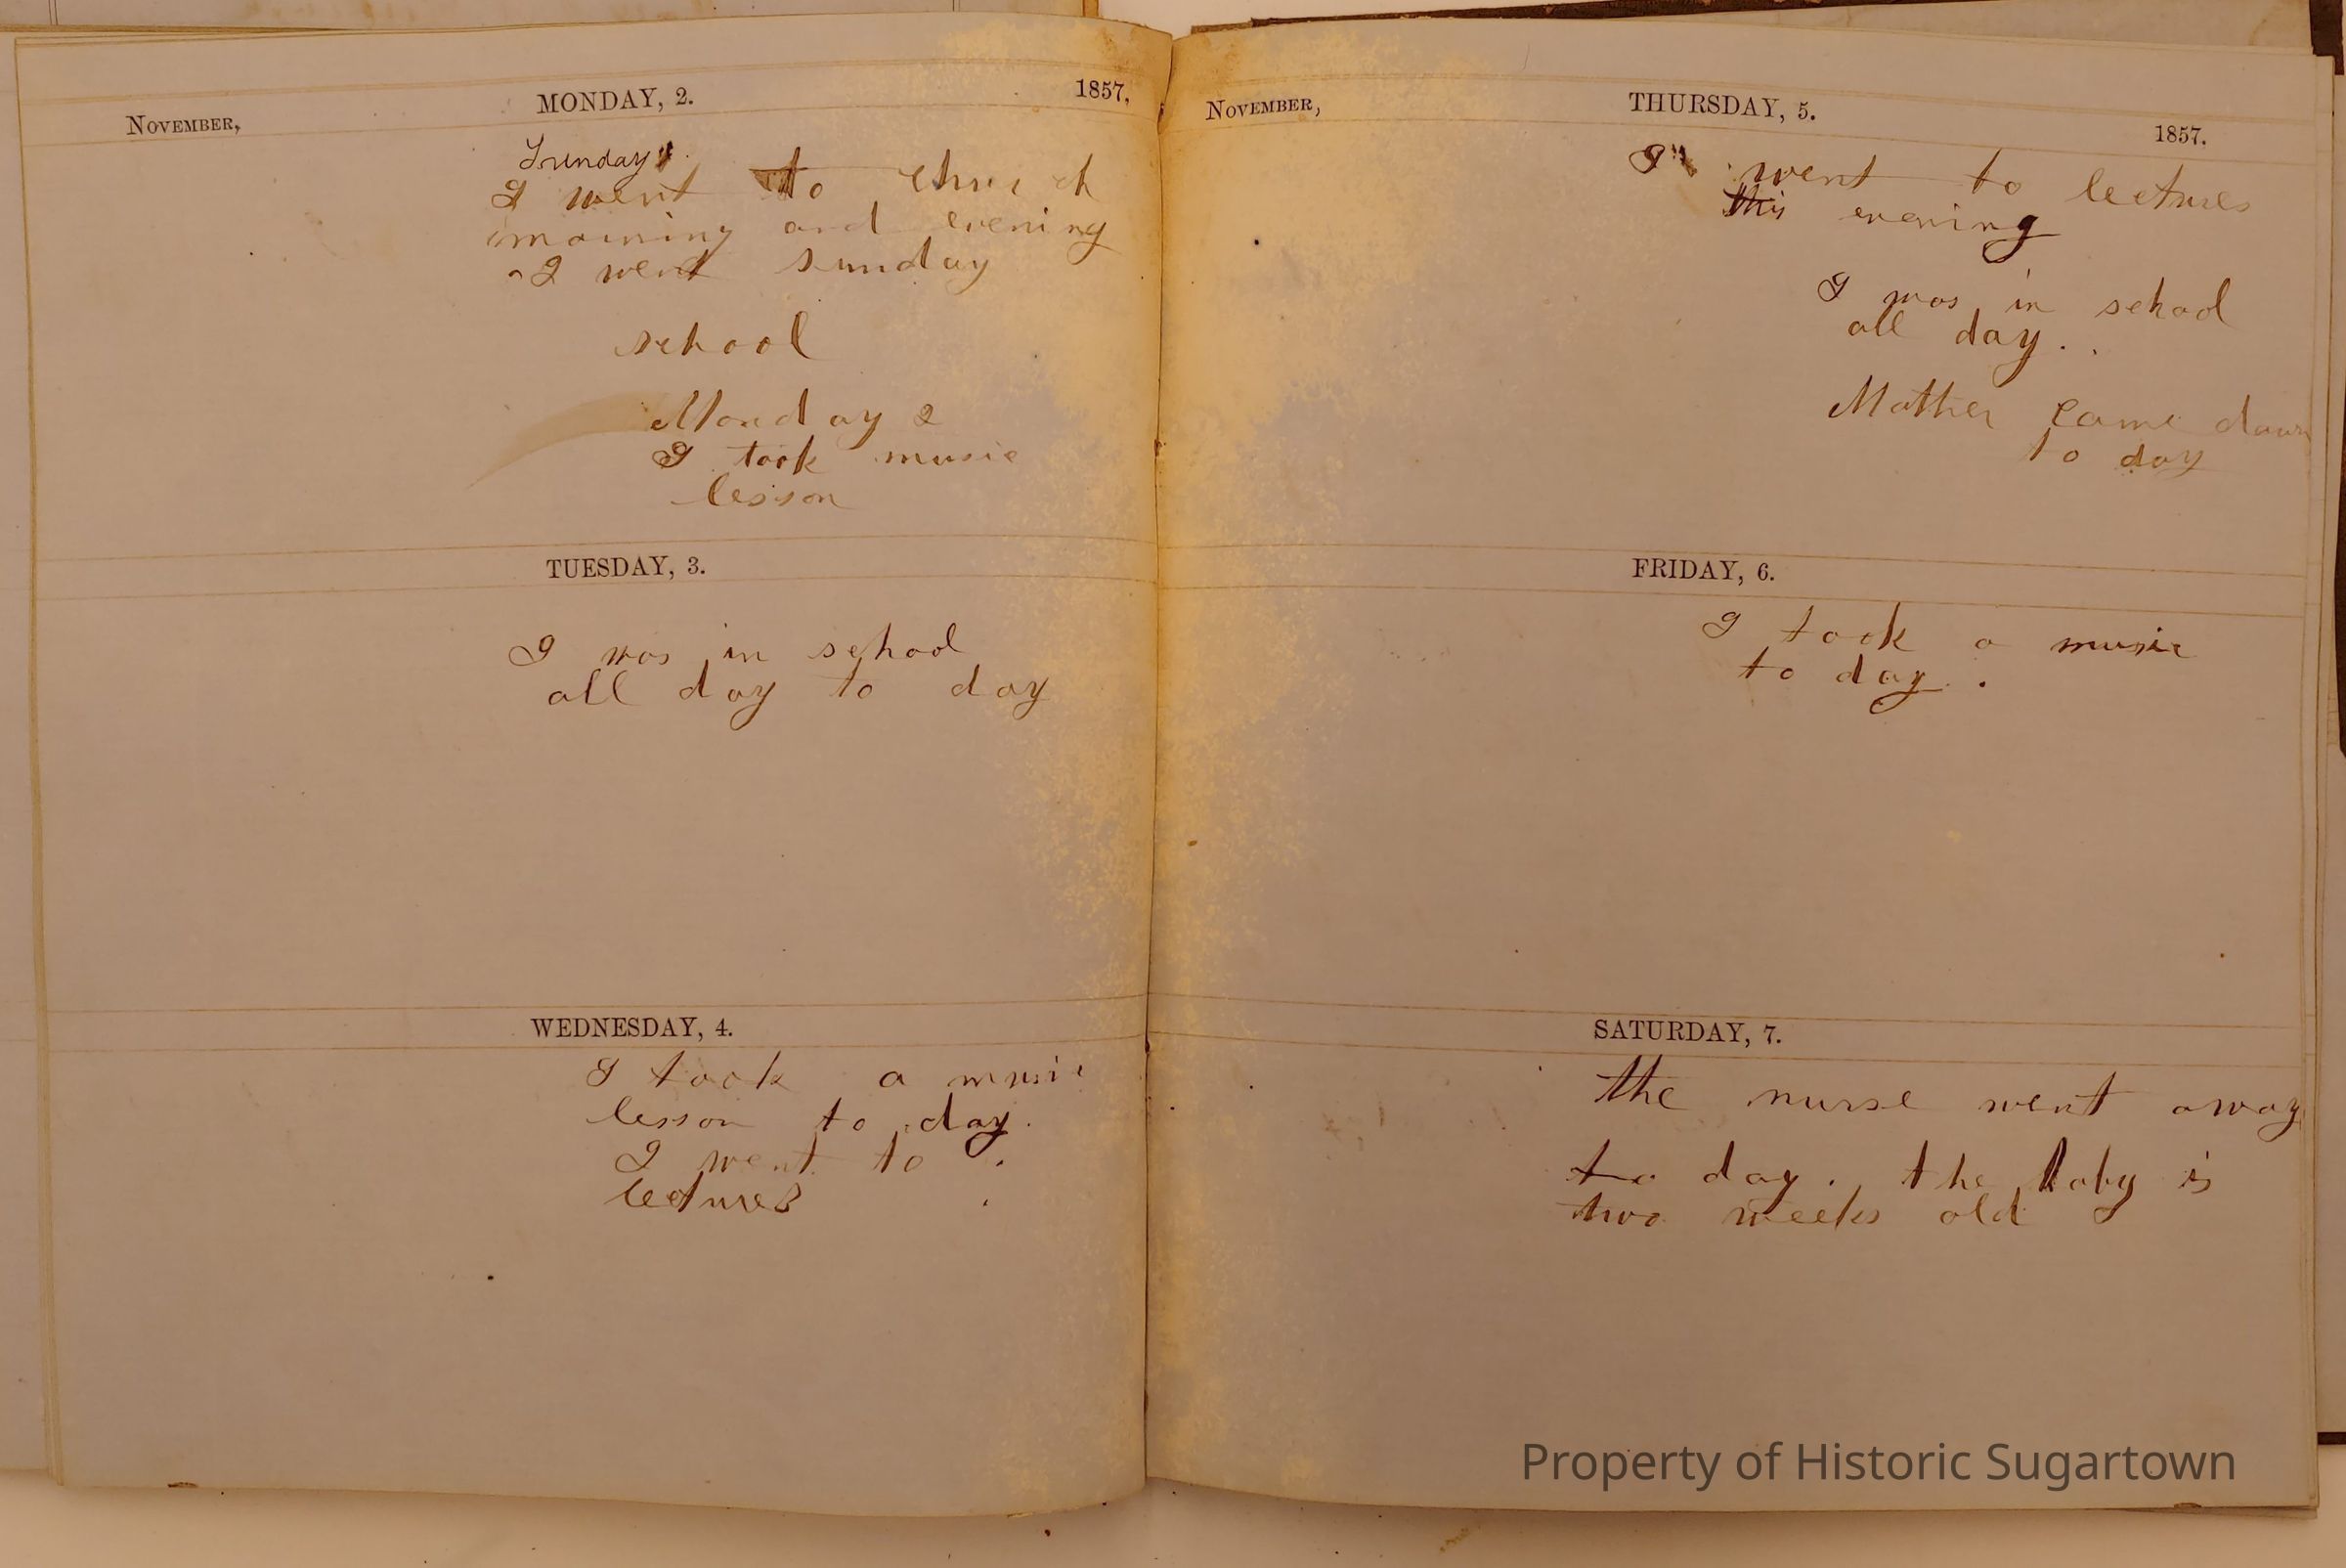 November, MONDAY, 2. 1857.
Sunday 1.
I went to church
morning and evening
I went sunday
school
Monday 2
I took music
lesson
TUESDAY, 3.
I was in school
all day to day
WEDNESDAY, 4.
I took a music
lesson to day.
I went to
lectures
November, THURSDAY, 5. 1857.
I went to lectures
this evening
I was in school
all day.
Mother came down
to day
FRIDAY, 6.
I took a music
to day.
SATURDAY, 7.
the nurse went away
to day. the baby is
two weeks old
Property of Historic Sugartown